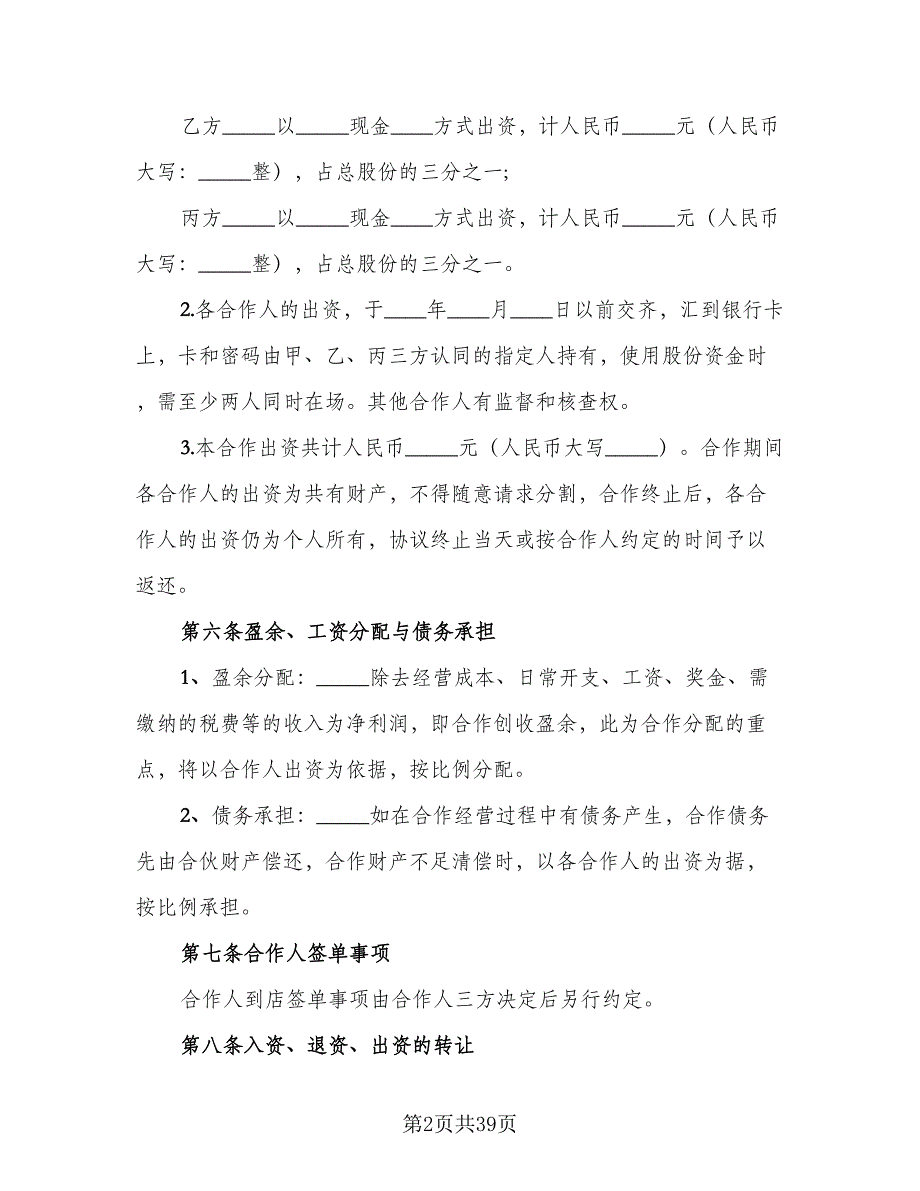 乙方_____以_____现金____方式出资，计人民币_____元（人民币
大写：_____整），占总股份的三分之一;
丙方_____以_____现金____方式出资，计人民币_____元（人民币
大写：_____整），占总股份的三分之一。
2.各合作人的出资，于____年____月____日以前交齐，汇到银行卡
上，卡和密码由甲、乙、丙三方认同的指定人持有，使用股份资金时
，需至少两人同时在场。其他合作人有监督和核查权。
3.本合作出资共计人民币_____元（人民币大写_____）。合作期间
各合作人的出资为共有财产，不得随意请求分割，合作终止后，各合
作人的出资仍为个人所有，协议终止当天或按合作人约定的时间予以
返还。
第六条盈余、工资分配与债务承担
1、盈余分配：_____除去经营成本、日常开支、工资、奖金、需
缴纳的税费等的收入为净利润，即合作创收盈余，此为合作分配的重
点，将以合作人出资为依据，按比例分配。
2、债务承担：_____如在合作经营过程中有债务产生，合作债务
先由合伙财产偿还，合作财产不足清偿时，以各合作人的出资为据，
按比例承担。
第七条合作人签单事项
合作人到店签单事项由合作人三方决定后另行约定。
第八条入资、退资、出资的转让
第2页共39页